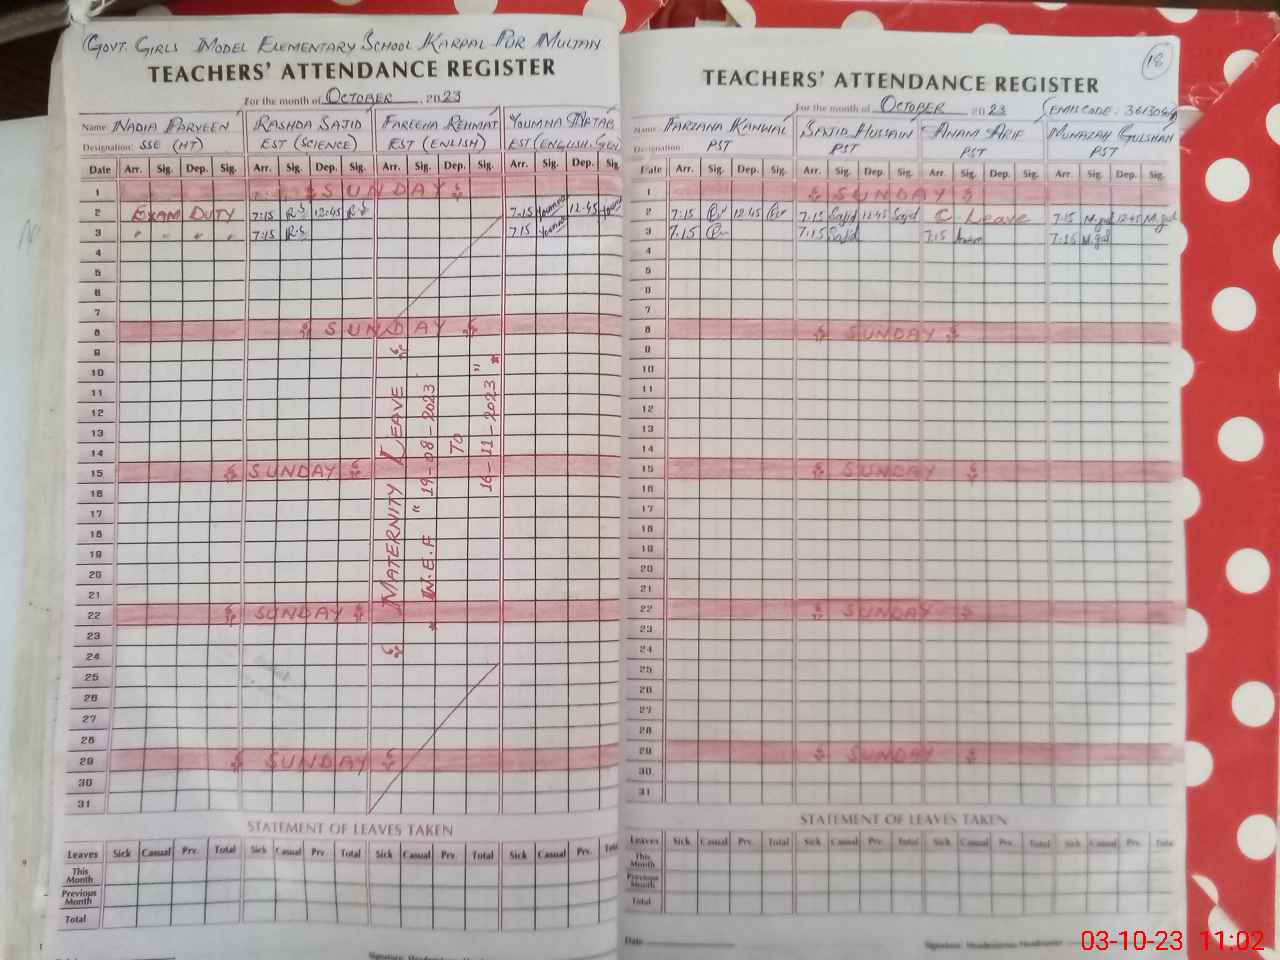 GOVT. GIRLS MODEL ELEMENTARY SCHOOL KARPAL PUR MULTAN
TEACHERS' ATTENDANCE REGISTER
For the month of OCTOBER, 2023
Name NADIA PARVEEN RASHDA SAJID FAREEHA REHMAT YOUMNA
Designation: SSE (HT) EST (SCIENCE) EST (ENLISH) EST (ENGLISH.
Date Arr. Sig. Dep. Sig. Arr. Sig. Dep. Sig. Arr. Sig. Dep. Sig. Arr. Sig. Dep. Sig.
1 SUNDAY
2 EXAM DUTY 7:15 R.S 12:45 R.S 7.15 Youmna 12.45
3 " " " " 7:15 R.S 7.15 Youmna
4
5
6
7
8 SUNDAY
9
10
11
12
13
14
15 SUNDAY
16
17
18
19
20
21
22 SUNDAY
23
24
25
26
27
28
29 SUNDAY
30
31
MATERNITY LEAVE
W.E.F " 19-08-2023
TO
16-11-2023 "
STATEMENT OF LEAVES TAKEN
Leaves Sick Casual Prv. Total Sick Casual Prv. Total Sick Casual Prv. Total Sick Casual Prv.
This Month
Previous Month
Total
18
TEACHERS' ATTENDANCE REGISTER
For the month of OCTOBER 2023 EMIS CODE:
Name: FARZANA KANWAL SAJID HUSSAIN ANAM ARIF MUNAZAH GULSHAN
Designation: PST PST PST PST
Date Arr. Sig. Dep. Sig. Arr. Sig. Dep. Sig. Arr. Sig. Dep. Sig. Arr. Sig. Dep. Sig.
1 SUNDAY
2 7:15 12:45 7:15 Sajid 12:45 Sajid C. Leave 7:15 M.gul 12:45 M.gul
3 7.15 7:15 Sajid 7:15 Anam 7:15 M.gul
4
5
6
7
8 SUNDAY
9
10
11
12
13
14
15 SUNDAY
16
17
18
19
20
21
22 SUNDAY
23
24
25
26
27
28
29 SUNDAY
30
31
STATEMENT OF LEAVES TAKEN
Leaves Sick Casual Prv. Total Sick Casual Prv. Total Sick Casual Prv. Total Sick Casual Prv.
This Month
Previous Month
Total
Date
03-10-23 11:02